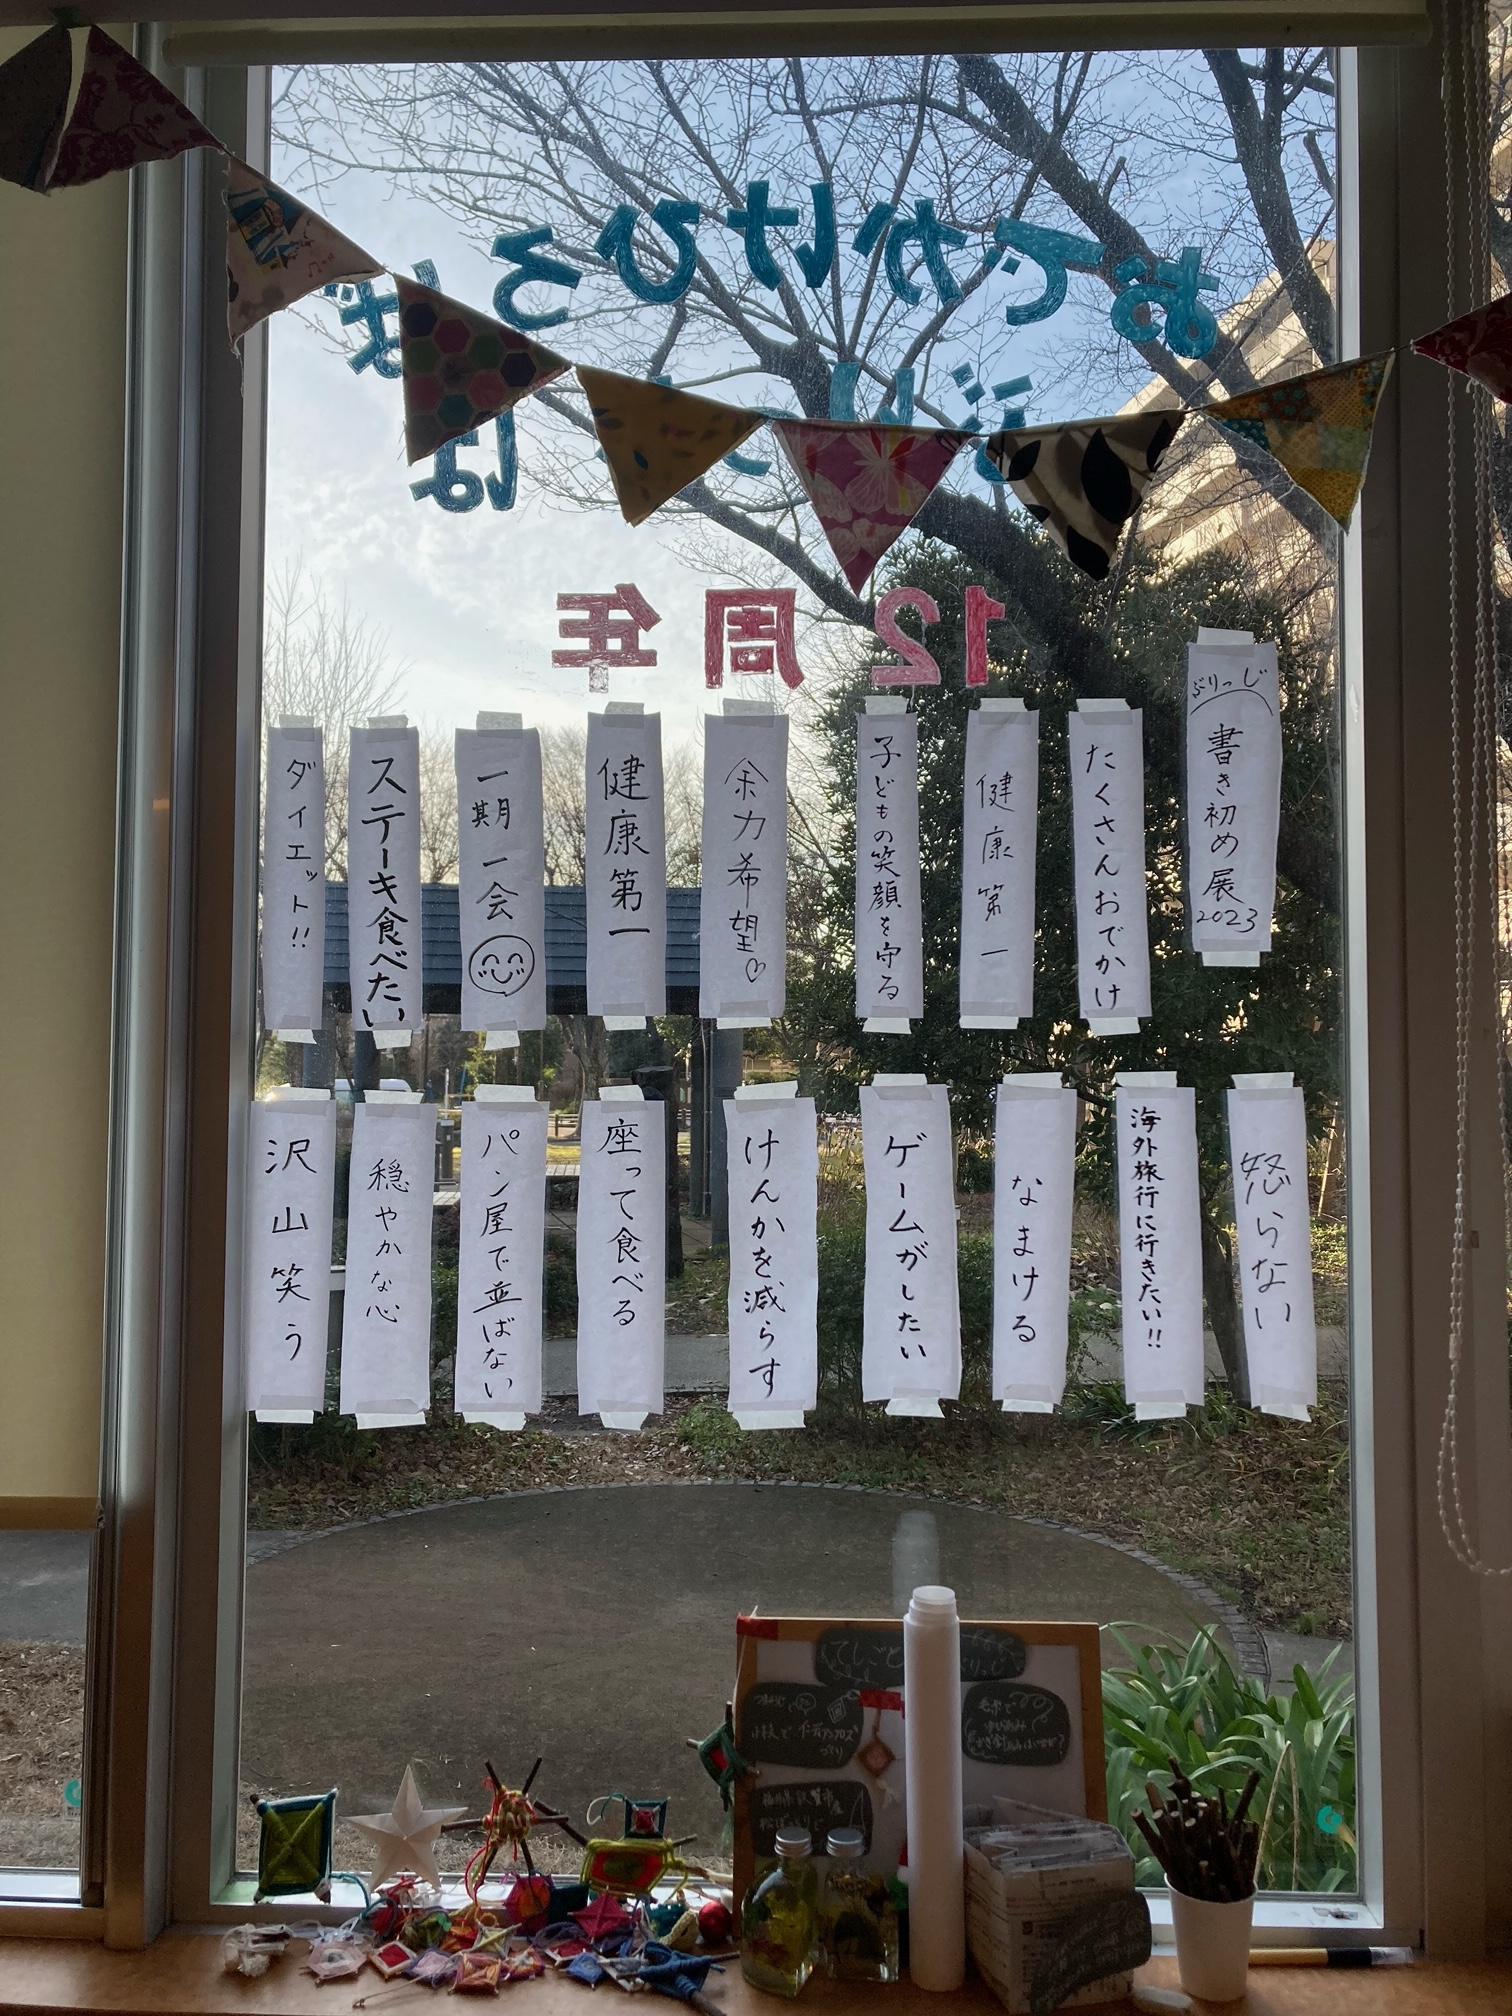 おでかけひろば
ぶりっじ
は
12周年
ぶりっじ
書き初め展
2023
たくさんおでかけ
健康第一
子どもの笑顔を守る
余力希望♡
健康第一
一期一会
ステーキ食べたい
ダイエット!!
怒らない
海外旅行に行きたい!!
なまける
ゲームがしたい
けんかを減らす
座って食べる
パン屋で並ばない
穏やかな心
沢山笑う
てしごと
ぶりっじ
小枝で
毛糸で